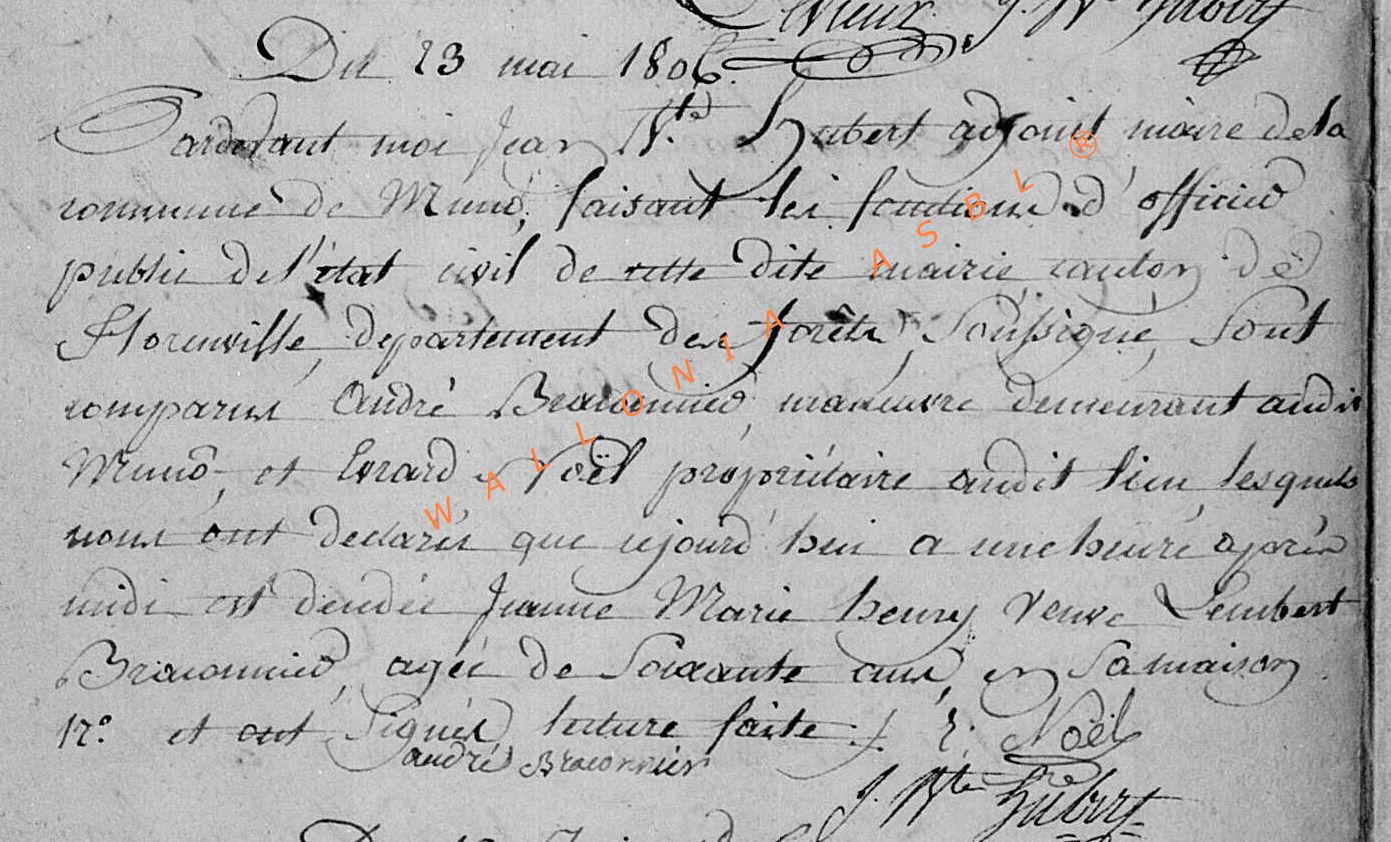 J. Bte Hubert
Du 23 mai 1806.
Pardevant moi Jean Bte. Hubert adjoint maire de la
commune de Muno, faisant les fonctions d'officier
public de l'état civil de cette dite mairie, canton de
Florenville, departement des forêts, Soussigné, Sont
comparus André Braconnier, manœuvre demeurant audit
Muno, et Evrard Noël propriétaire audit lieu, lesquels
nous ont declarés que cejourd'hui a une heure après
midi est dcédée Jeanne Marie henry veuve Lambert
Braconnier, agée de Soixante ans, en Sa maison
et ont Signés lecture faite ./. E: Noël
andré Braconnier
J. Bte Hubert
WALLONIA ASBL ®